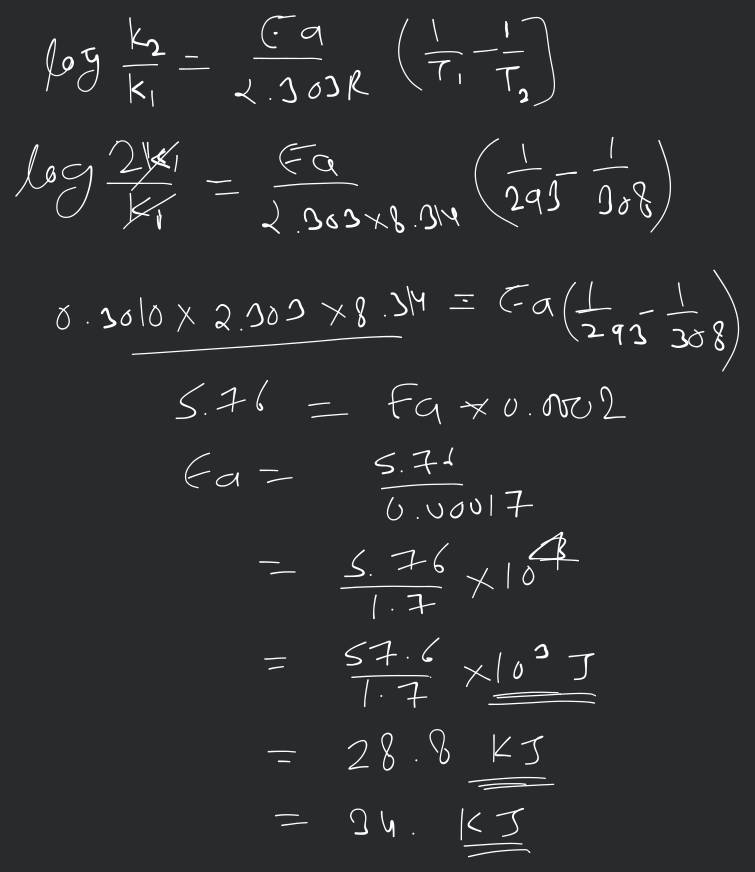 log k₂/k₁ = Ea/2.303R (1/T₁ - 1/T₂)
log 2k₁/k₁ = Ea/2.303×8.314 (1/293 - 1/308)
0.3010 × 2.303 × 8.314 = Ea(1/293 - 1/308)
5.76 = Ea × 0.0002
Ea = 5.76/0.00017
= 5.76/1.7 × 10⁴
= 57.6/1.7 × 10³ J
= 28.8 KJ
= 34. KJ